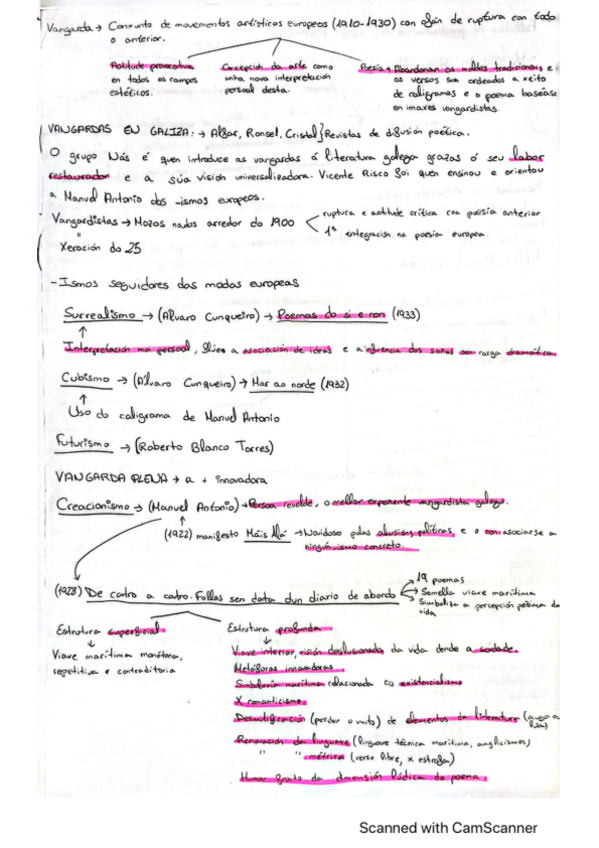 Vangarda → Conxunto de movementos artísticos europeos (1910-1930) con afán de ruptura con todo
o anterior.
Actitude provocativa
en todos os campos
estéticos.
Concepción da arte como
unha nova interpretación
persoal desta.
Poesía → Abandonan os moldes tradicionais e
os versos son ordeados a xeito
de caligramas e o poema baséase
en imaxes vangardistas.
VANGARDAS EN GALIZA: → Alfar, Ronsel, Cristal} Revistas de difusión poética.
O grupo Nós é quen introduce as vangardas á literatura galega grazas ó seu labor
restaurador e a súa visión universalizadora. Vicente Risco foi quen ensinou e orientou
a Manuel Antonio dos -ismos europeos.
Vangardistas → Mozos nados arredor do 1900
ruptura e actitude crítica coa poesía anterior
1ª integración na poesía europea.
"
Xeración do 25
- Ismos seguidores das modas europeas
Surrealismo → (Álvaro Cunqueiro) → Poemas do si e non (1933)
Interpretación moi persoal, flúe a asociación de ideas e a influencia dos soños sen carga dramática
Cubismo → (Álvaro Cunqueiro) → Mar ao norde (1932)
Uso do caligrama de Manuel Antonio
Futurismo → (Roberto Blanco Torres)
VANGARDA PLENA → a + innovadora
Creacionismo → (Manuel Antonio) → Persoa revelde, o mellor expoñente vangardista galego.
(1922) manifesto Máis Alá → Novidoso polas alusións políticas, e o non asociarse a
ningún ismo concreto.
(1928) De catro a catro. Follas sen data dun diario de abordo
19 poemas
Semella viaxe marítima
Simboliza a percepción pésima da
vida
Estrutura superficial
Viaxe marítima monótona,
repetitiva e contraditoria
Estrutura profunda
Viaxe interior, visión desilusionada da vida dende a soidade.
Metáforas innovadoras
Simboloxía marítima relacionada co existencialismo
X romanticismo
Desmitificación (perder o mito) de elementos da literatura
Renovación da linguaxe (linguaxe técnica marítima, anglicismos)
" " métrica (verso libre, x estrofa)
Humor froito da dimensión lúdica do poema.
Scanned with CamScanner